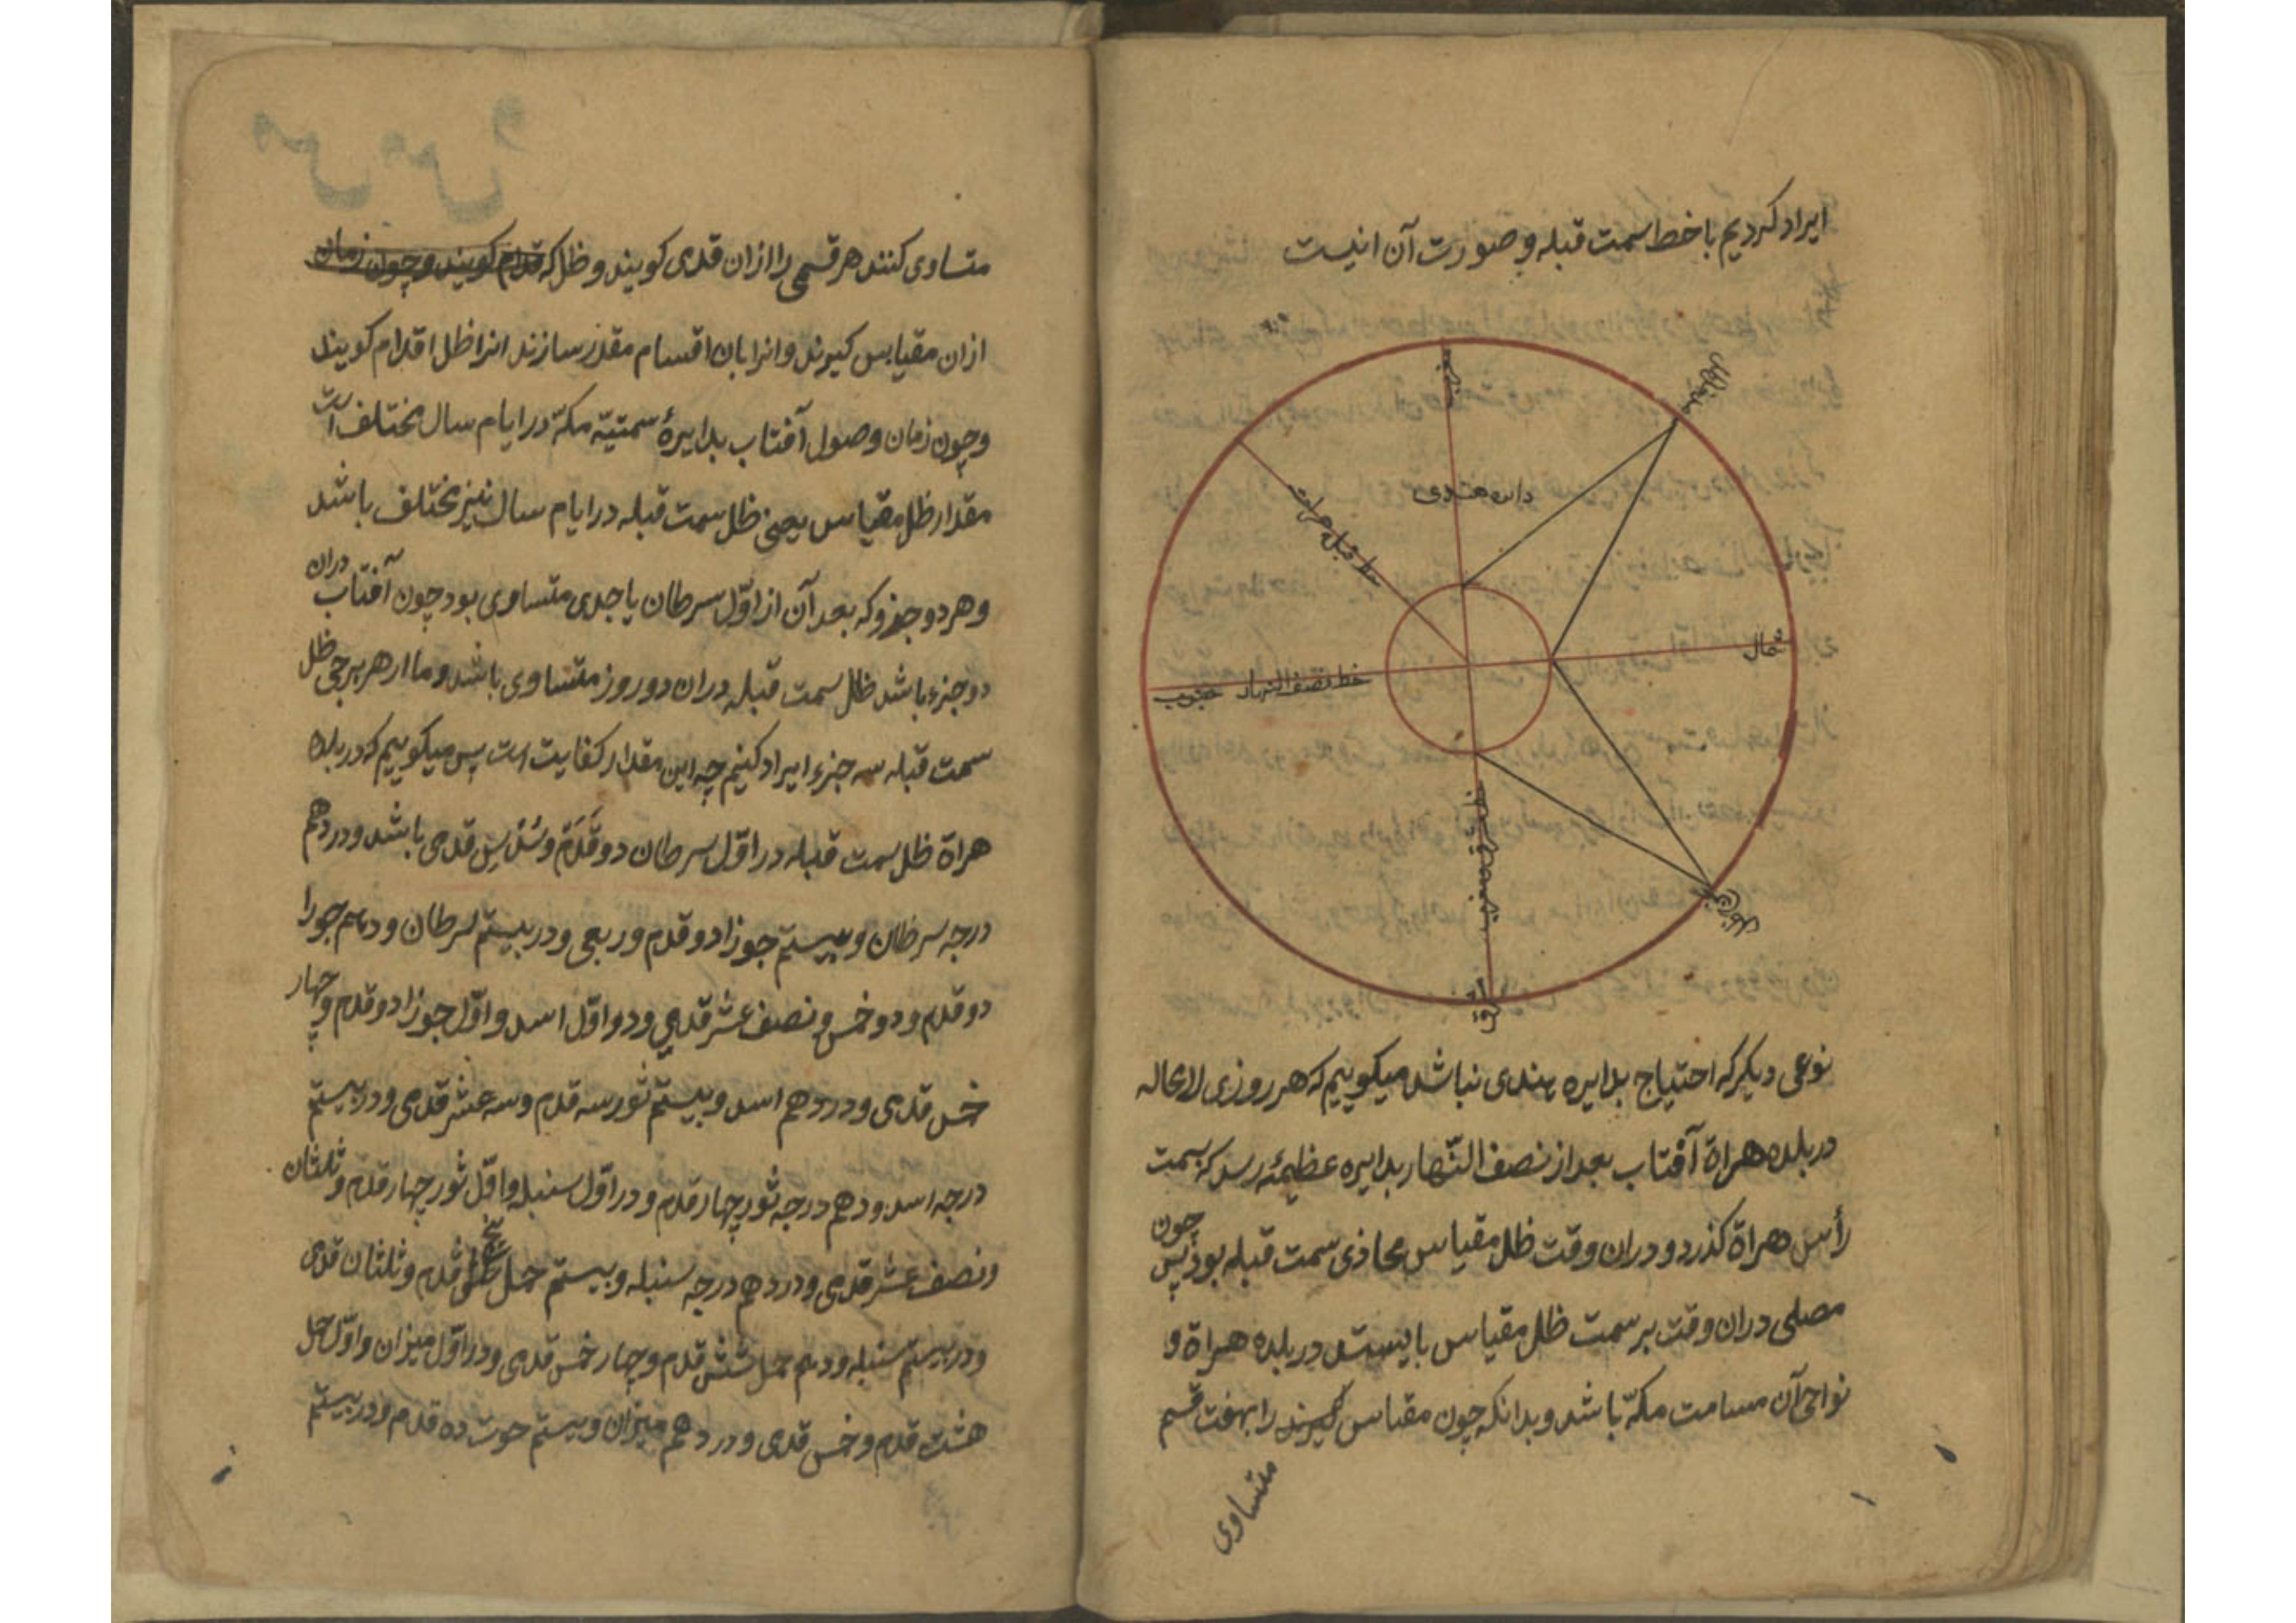 ایراد کردیم با خط سمت قبله و صورت آن اینست
مغرب
دایره هندی
خط قبله هراة
شمال
خط نصف النهار جنوب
نوعی دیکر که احتیاج بدایره هندی نباشد میکوییم که هر روزی لامحاله
در بلده هراة آفتاب بعد از نصف النّهار بدایره عظیمۀ رسد که بسمت
رأس هراة کذرد و دران وقت ظل مقیاس محاذی سمت قبله بود پس چون
مصلی دران وقت بر سمت ظل مقیاس بایستد در بلده هراة و
نواحی آن مسامت مکّه باشد و بدانکه چون مقیاس کیرند را بهفت قسم
متساوی
متساوی کنند هر قسمی را ازان قدمی کویند و ظل که قدام کویند و چون زمان
ازان مقیاس کیرند و انرا بان اقسام مقدر سازند انرا ظل اقدام کویند
و چون زمان وصول آفتاب بدایرۀ سمتیّه مکّه در ایام سال مختلف است
مقدار ظل مقیاس یعنی ظل سمت قبله در ایام سال نیز مختلف باشد
و هر دو جزو که بعد آن از اوّل سرطان یا جدی متساوی بود چون آفتاب دران
دو جزء باشد ظل سمت قبله دران دو روز متساوی باشد و ما از هر برجی ظل
سمت قبله سه جزء ایراد کنیم چه این مقدار کفایت است پس میکوییم که در بلده
هراة ظل سمت قبله در اوّل سرطان دو قَدَم و سُدْس قدمی باشد و در دهم
درجه سرطان و بیستم جوزا دو قدم و ربعی و در بیستم سرطان و دهم جوزا
دو قدم و دو خمس و نصف عشر قدمی و در اوّل اسد و اوّل جوزا دو قدم و چهار
خمس قدمی و در دهم اسد و بیستم ثور سه قدم و سه عشر قدمی و در بیستم
درجه اسد و دهم درجه ثور چهار قدم و در اوّل سنبله و اوّل ثور چهار قدم و ثلثان
و نصف عشر قدمی و در دهم درجه سنبله و بیستم حمل پنج قدم و ثلثان قدمی
و در بیستم سنبله و دهم حمل شش قدم و چهار خمس قدمی و در اوّل میزان و اوّل حمل
هشت قدم و خمس قدمی و در دهم میزان و بیستم حوت ده قدم و در بیستم